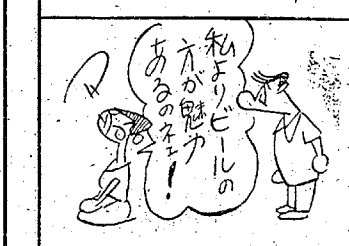 私よりビールの
方が魅力
あるのネェ!